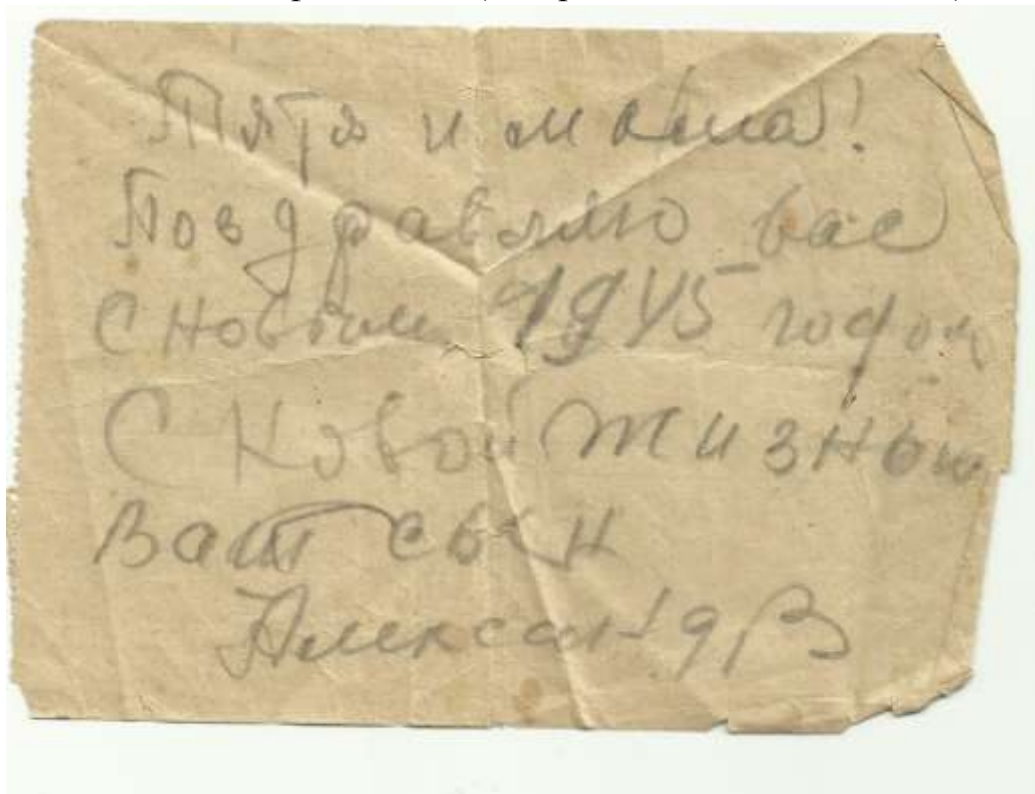 Тятя и мама!
Поздравляю вас
С Новым 1945 годом
С Новой жизнью
Ваш сын
Александр